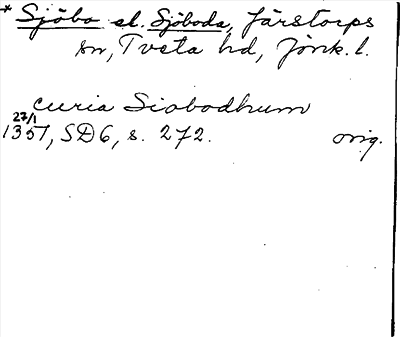 * Sjöbo el. Sjöboda, Järstorps
sn, Tveta hd, Jönk. l.
curia Siobodhum
27/1
1357, SD6, s. 272. orig.